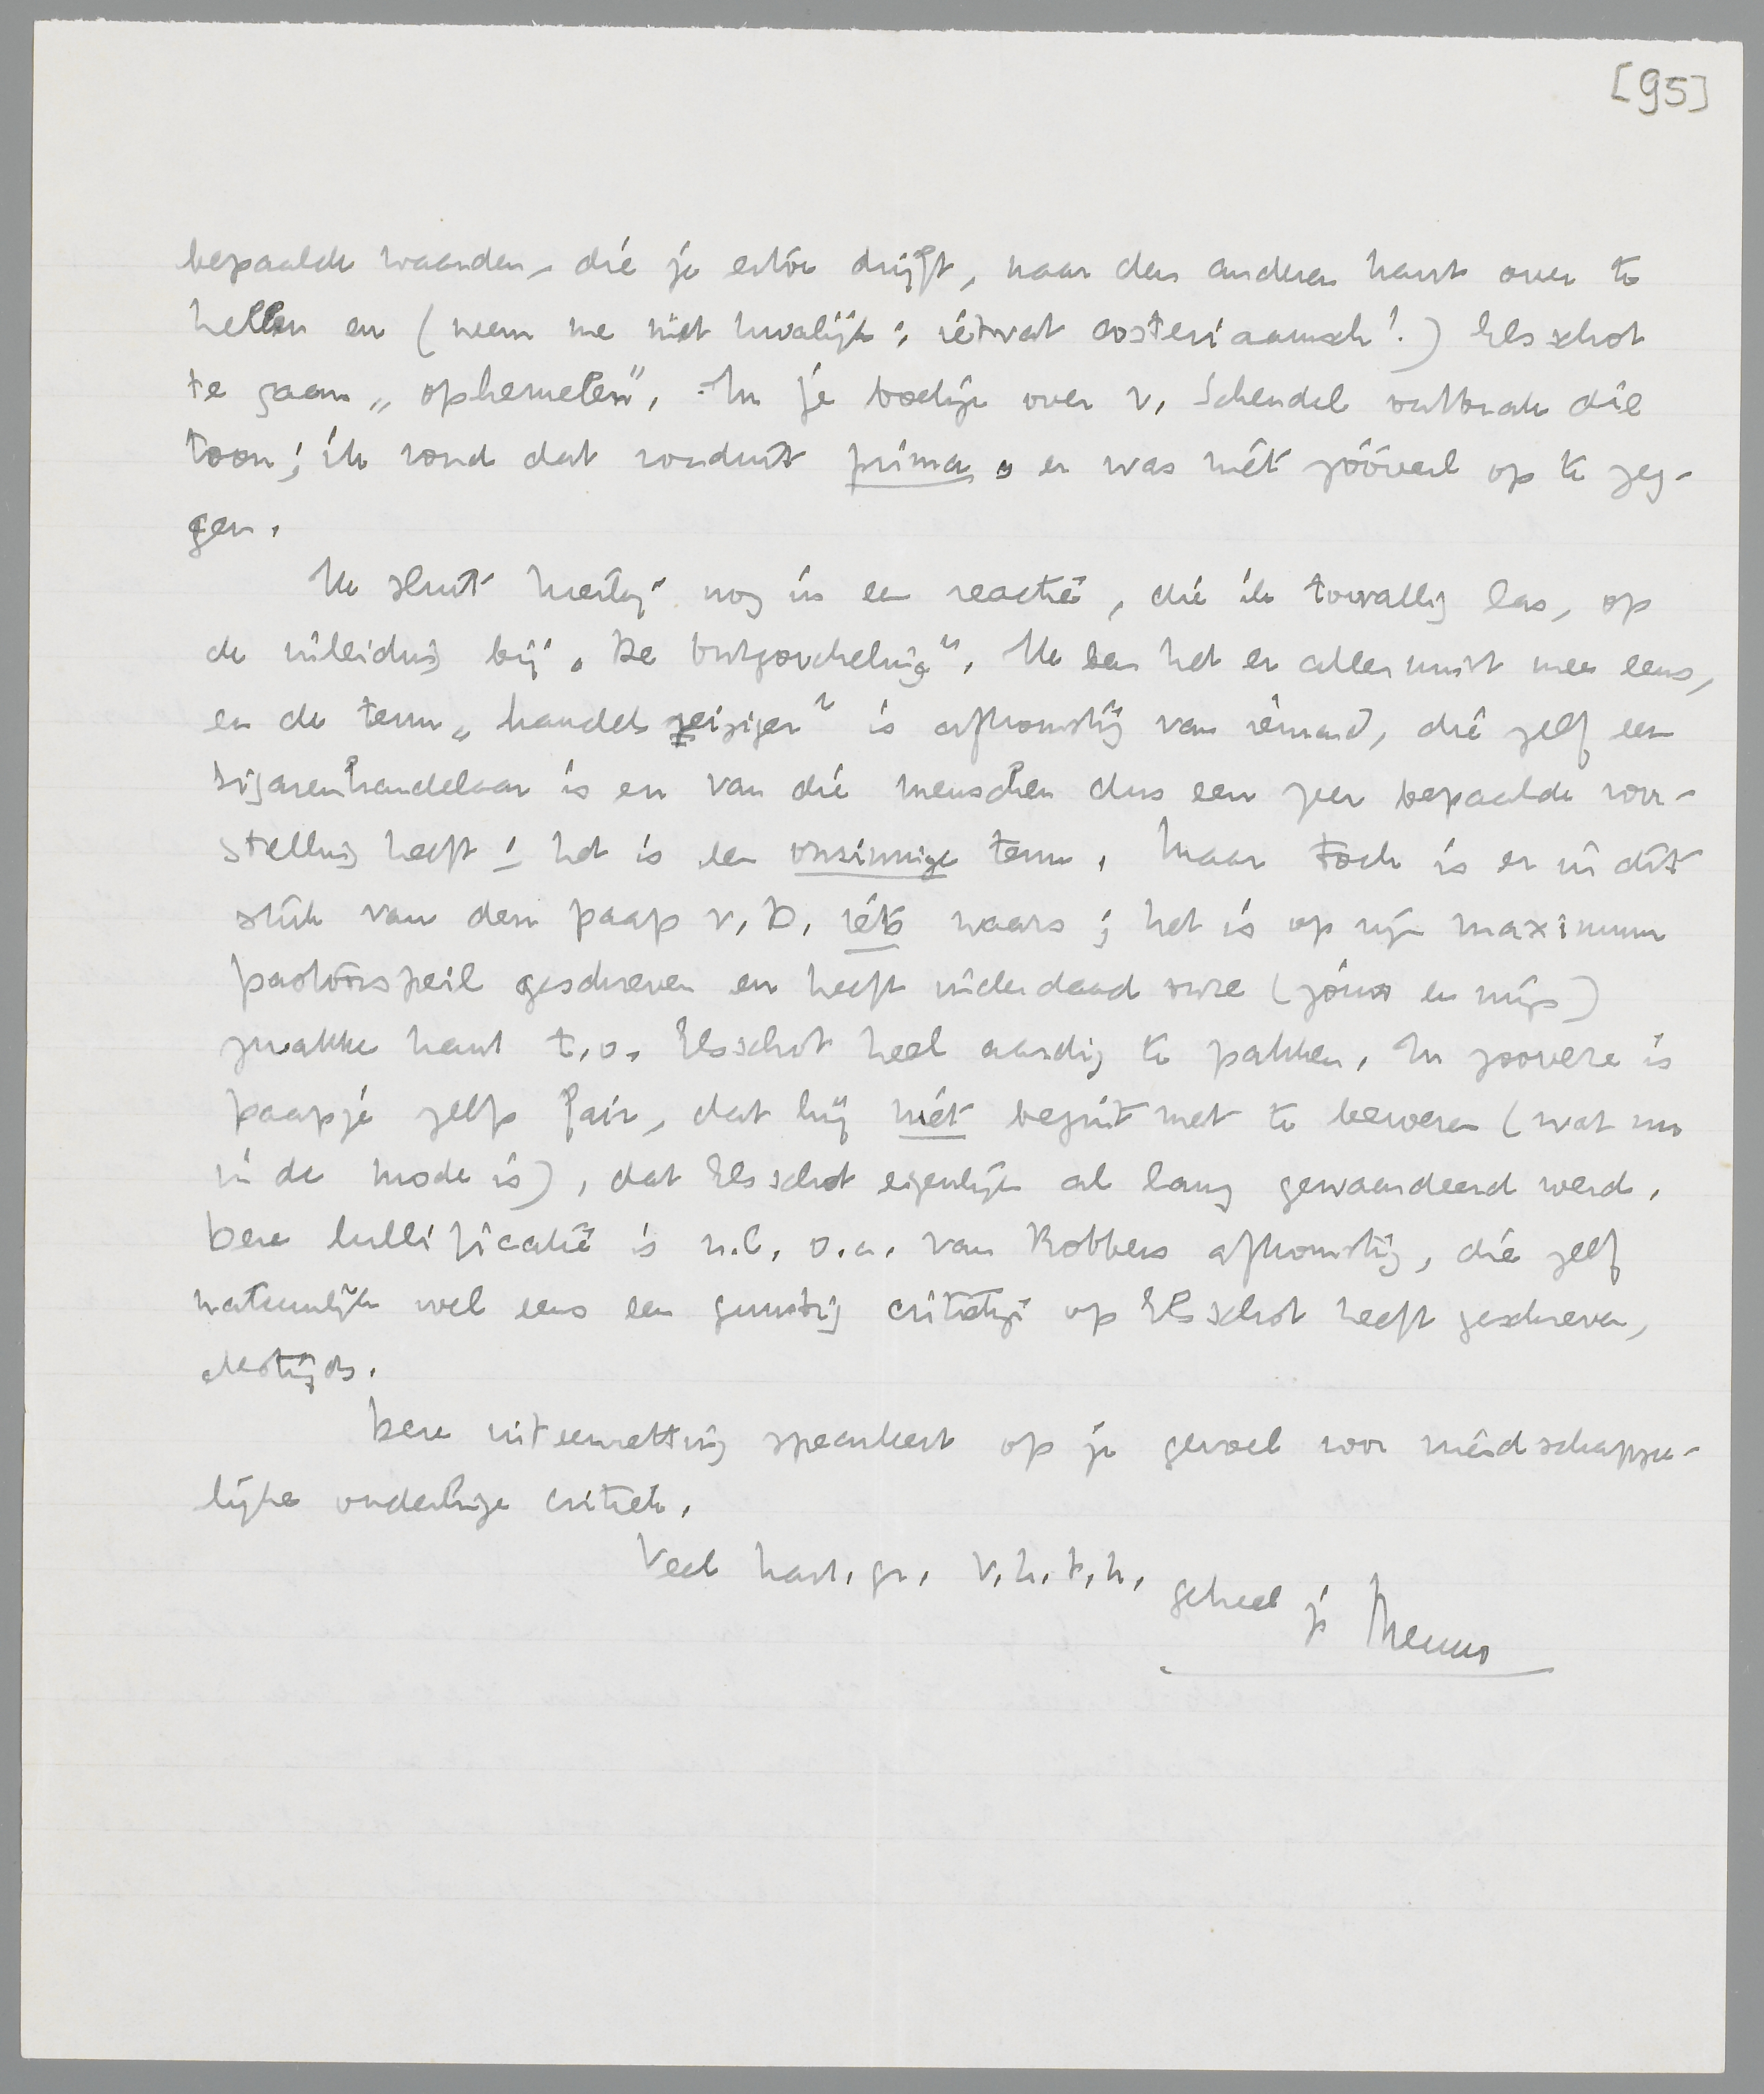 [95]
bepaalde waarden, die je ertoe drijft, naar den anderen kant over te
hellen en (neem me niet kwalijk: ietwat costeriaansch!) Elsschot
te gaan „ophemelen". In je boekje over v. Schendel ontbrak die
toon; ik vond dat ronduit prima, er was niet zóóveel op te zeg-
gen.
Ik sluit hierbij nog in een reactie, die ik toevallig las, op
de inleiding bij „De Ontgoocheling". Ik ben het er allerminst mee eens,
en de term „handelsreiziger" is afkomstig van iemand, die zelf een
sigarenhandelaar is en van die menschen dus een zeer bepaalde voor-
stelling heeft; het is een onzinnige term. Maar toch is er in dit
stuk van den paap v.D. iets waars; het is op zijn maximum
pastoorspeil geschreven en heeft inderdaad onze (jouw en mijn)
zwakke kant t.o. Elsschot heel aardig te pakken. In zooverre is
paapje zelfs fair, dat hij niet begint met te beweren (wat nu
in de mode is), dat Elsschot eigenlijk al lang gewaardeerd werd.
Deze lullificatie is n.l. o.a. van Robbers afkomstig, die zelf
natuurlijk wel eens een gunstig critiekje op Elsschot heeft geschreven,
destijds.
Deze uiteenzetting speculeert op je gevoel voor vriendschappe-
lijke onderlinge critiek.
Veel hart. gr. v.h.t.h.
geheel je Menno